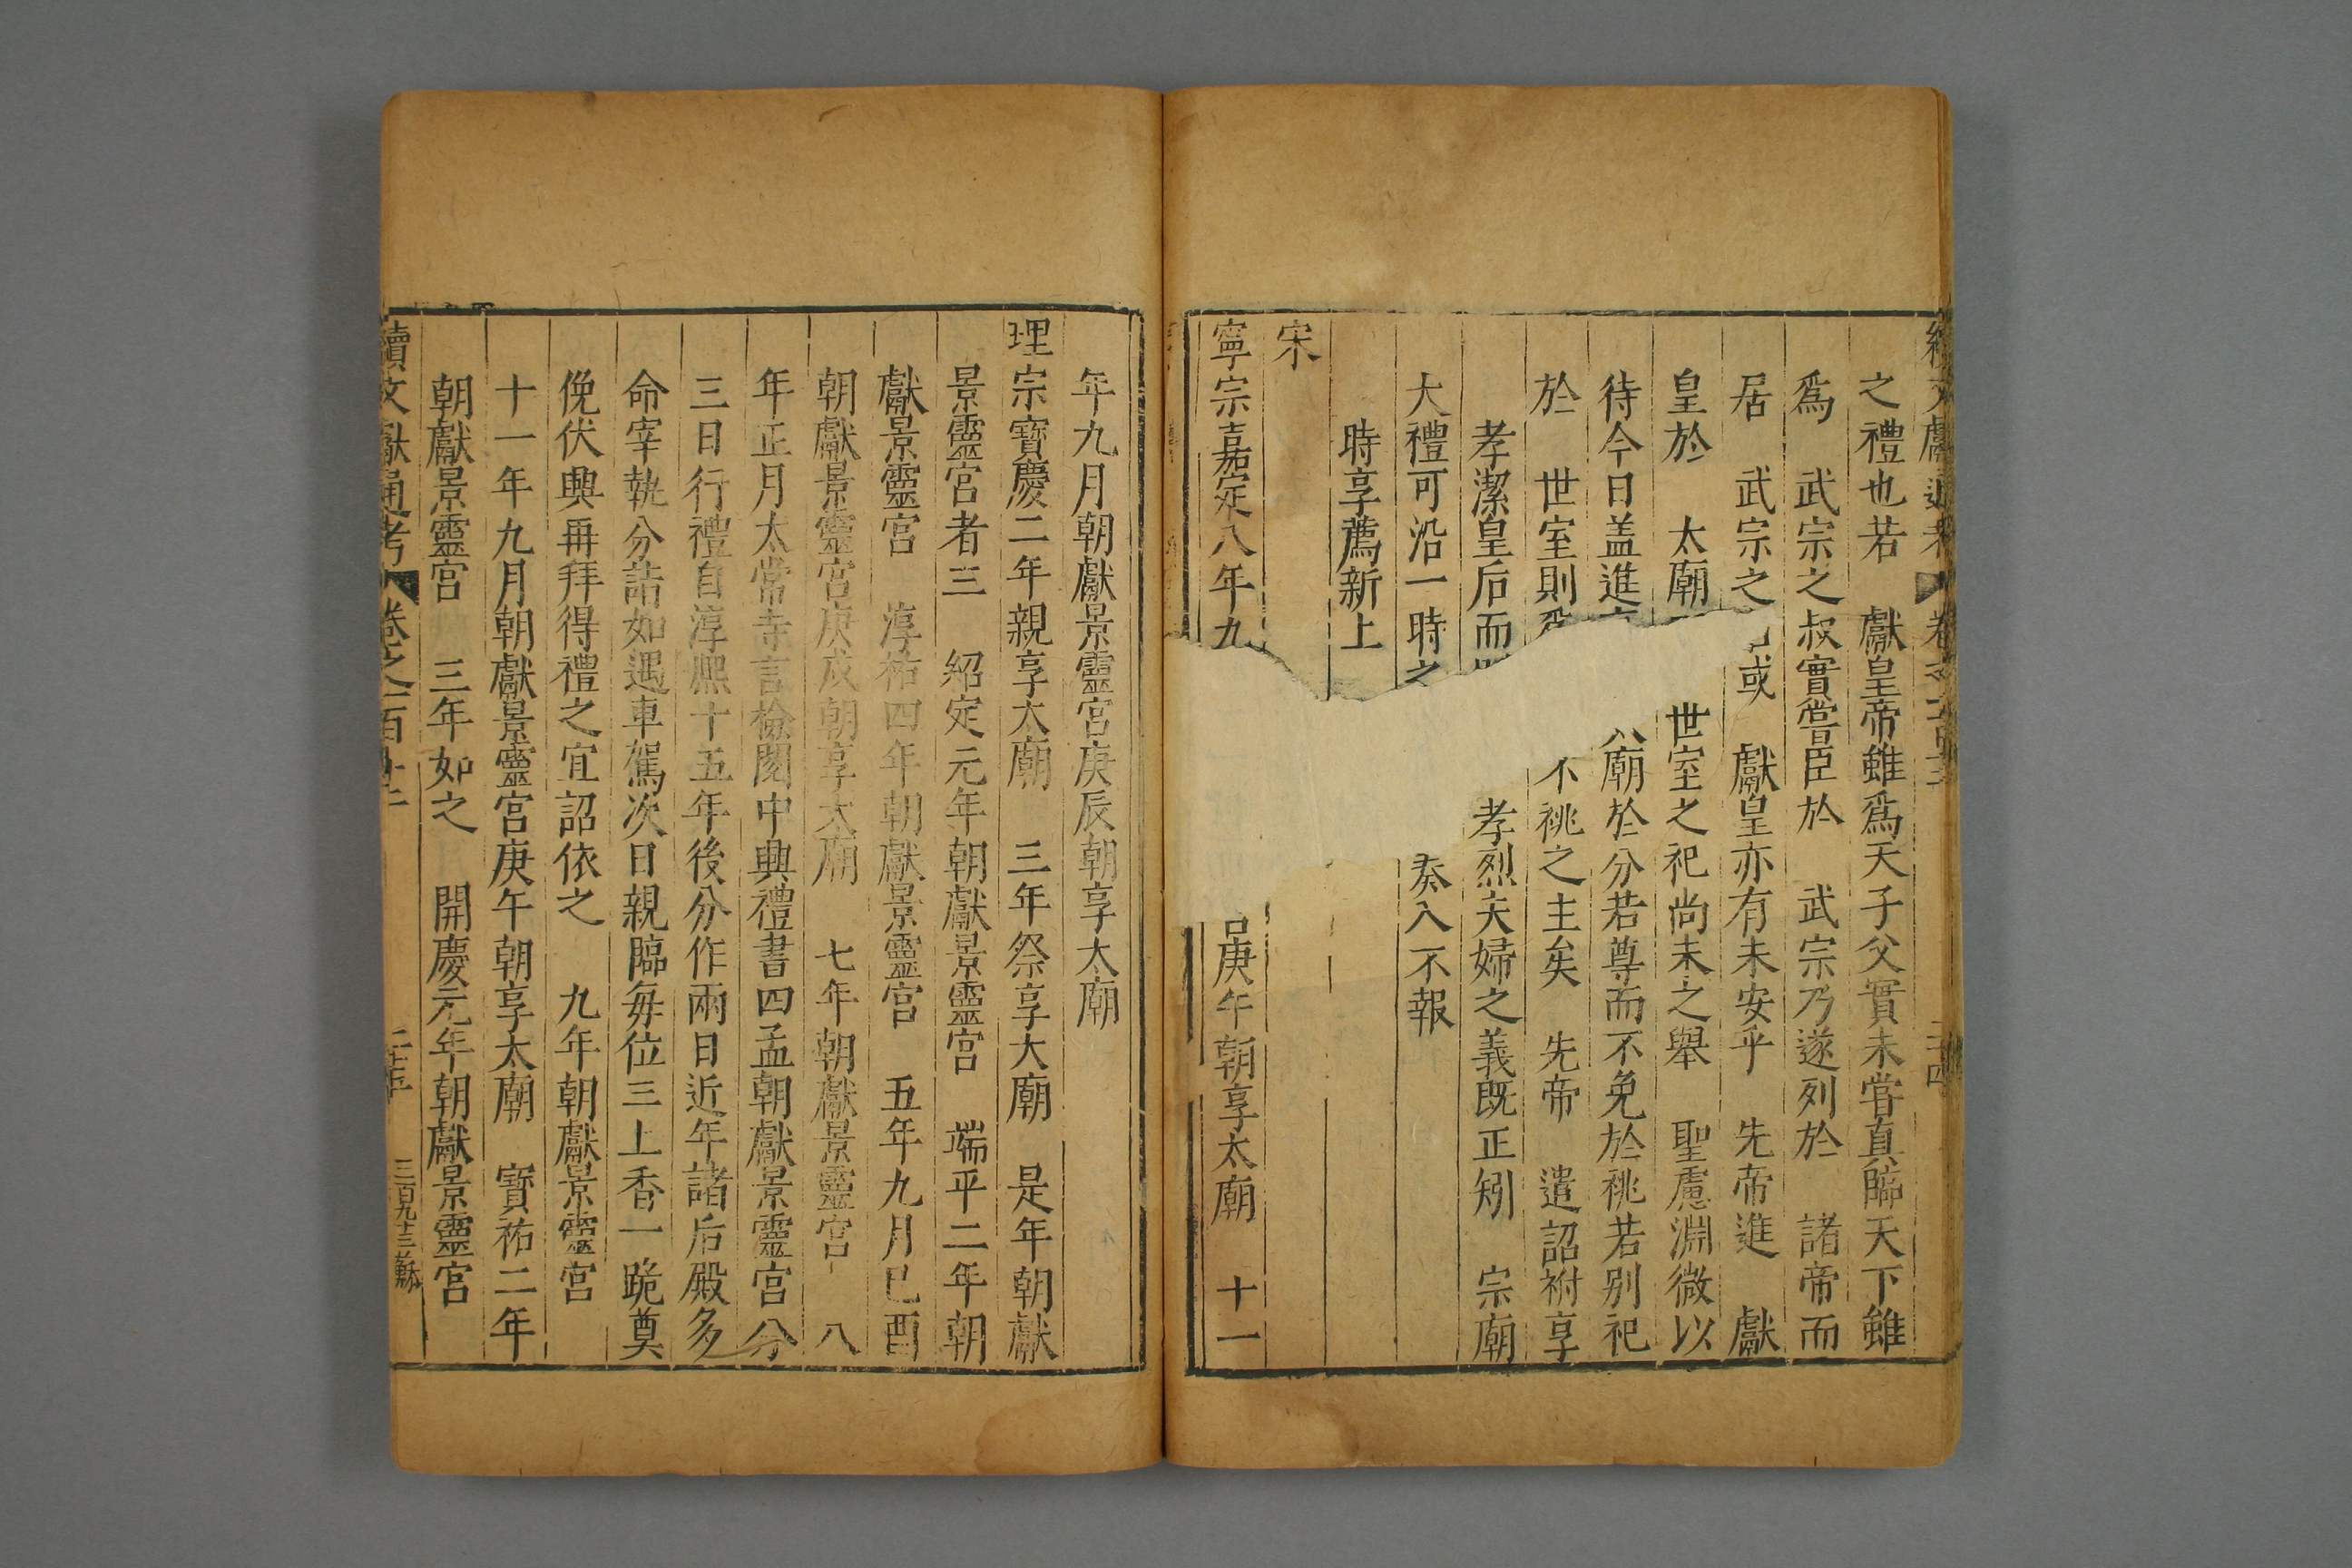 之禮也若　獻皇帝雖爲天子父實未嘗真臨天下雖
爲　武宗之叔實嘗臣於　武宗乃遂列於　諸帝而
居　武宗之　或　獻皇亦有未安乎　先帝進　獻
皇於　太廟　世室之祀尚未之舉　聖慮淵微以
待今日盖進　廟於分若尊而不免於祧若别祀
於　世室則　不祧之主矣　先帝　遣詔祔享
孝潔皇后而　孝烈夫婦之義既正矧　宗廟
大禮可沿一時之　奏入不報
時享薦新上
宋
寧宗嘉定八年九　庚午朝享太廟　十一
年九月朝獻景靈宮庚辰朝享太廟
理宗寶慶二年親享太廟　三年祭享大廟　是年朝獻
景靈宮者三　紹定元年朝獻景靈宮　端平二年朝
獻景靈宮　淳祐四年朝獻景靈宮　五年九月已酉
朝獻景靈宮庚戌朝享太廟　七年朝獻景靈宮　八
年正月太常寺言檢閱中興禮書四孟朝獻景靈宮分
三日行禮自淳熙十五年後分作兩日近年諸后殿多
命宰執分詣如遇車駕次日親臨每位三上香一跪奠
俛伏興再拜得禮之宜詔依之　九年朝獻景靈宮
十一年九月朝獻景靈宮庚午朝享太廟　寶祐二年
朝獻景靈宮　三年如之　開慶元年朝獻景靈宮
續文獻通考　卷之一百